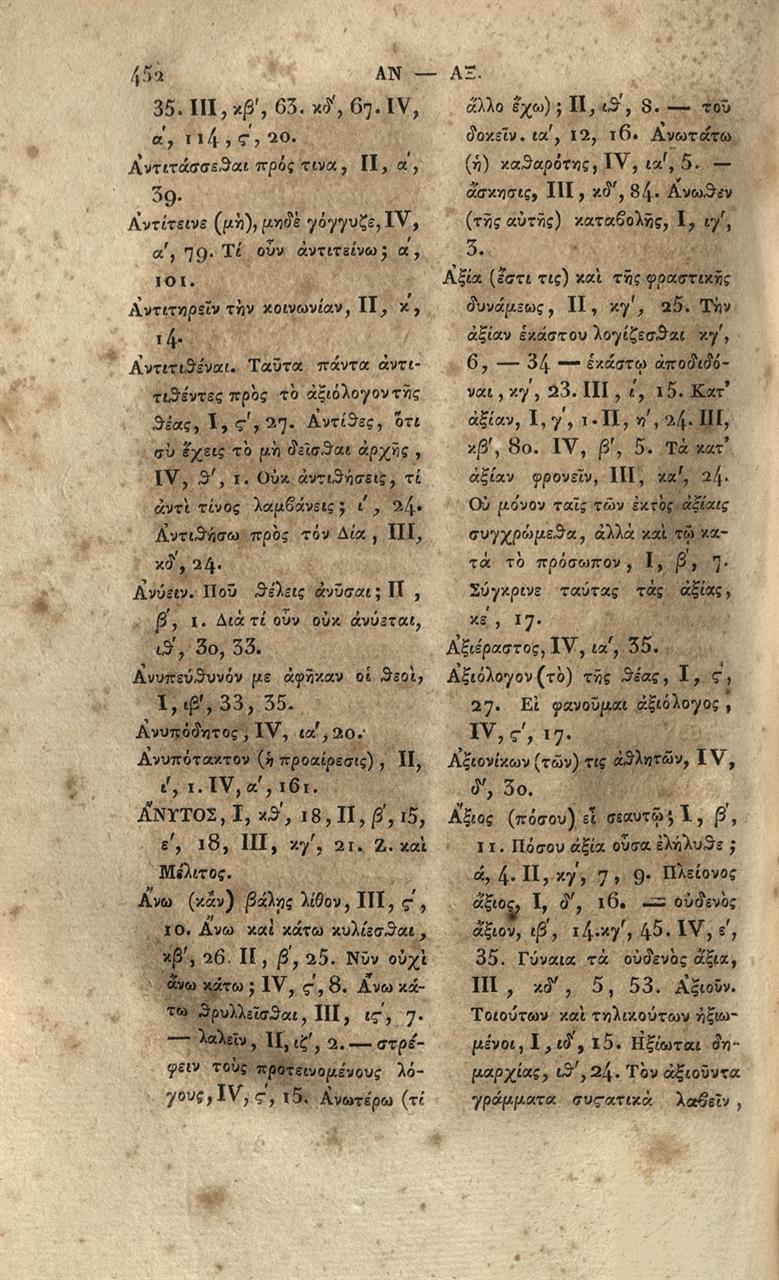 452
ΑΝ — ΑΞ.
35. III, κβ', 63. κδ', 67. IV,
α', 114, ϛ', 20.
Ἀντιτάσσεϑαι πρός τινα, II, α',
39.
Ἀντίτεινε (μὴ), μηδὲ γόγγυζε, IV,
α', 79. Τί οὖν ἀντιτείνω; α',
101.
Ἀντιτηρεῖν τὴν κοινωνίαν, II, κ',
14.
Ἀντιτιϑέναι. Ταῦτα πάντα ἀντι-
τιϑέντες πρὸς τὸ ἀξιόλογον τῆς
ϑέας, I, ϛ', 27. Ἀντίϑες, ὅτι
σὺ ἔχεις τὸ μὴ δεῖσϑαι ἀρχῆς,
IV, ϑ', 1. Οὐκ ἀντιϑήσεις, τί
ἀντὶ τίνος λαμβάνεις; ι', 24.
Ἀντιϑήσω πρὸς τόν Δία, III,
κδ', 24.
Ἀνύειν. Ποῦ ϑέλεις ἀνῦσαι; II,
β', 1. Διὰ τί οὖν οὐκ ἀνύεται,
ιϑ', 30, 33.
Ἀνυπεύϑυνόν με ἀφῆκαν οἱ ϑεοὶ,
I, ιβ', 33, 35.
Ἀνυπόδητος, IV, ια', 20.
Ἀνυπότακτον (ἡ προαίρεσις), II,
ι', 1. IV, α', 161.
ἌΝΥΤΟΣ, I, κϑ', 18, II, β', 15,
ε', 18, III, κγ', 21. Ζ. καὶ
Μέλιτος.
Ἄνω (κἂν) βάλῃς λίϑον, III, ϛ',
10. Ἄνω καὶ κάτω κυλίεσϑαι,
κβ', 26. II, β', 25. Νῦν οὐχὶ
ἄνω κάτω; IV, ϛ', 8. Ἄνω κά-
τω ϑρυλλεῖσϑαι, III, ιϛ', 7.
— λαλεῖν, II, ιζ', 2. — στρέ-
φειν τοὺς προτεινομένους λό-
γους, IV, ϛ', 15. Ἀνωτέρω (τί
ἄλλο ἔχω); II, ιϑ', 8. — τοῦ
δοκεῖν. ια', 12, 16. Ἀνωτάτω
(ἡ) καϑαρότης, IV, ια', 5. —
ἄσκησις, III, κδ', 84. Ἄνωϑεν
(τῆς αὐτῆς) καταβολῆς, I, ιγ',
3.
Ἀξία (ἔστι τις) καὶ τῆς φραστικῆς
δυνάμεως, II, κγ', 25. Τὴν
ἀξίαν ἑκάστου λογίζεσϑαι κγ',
6, — 34 — ἑκάστῳ ἀποδιδό-
ναι, κγ', 23. III, ί, 15. Κατ'
ἀξίαν, I, γ', 1. II, η', 24. III,
κβ', 80. IV, β', 5. Τὰ κατ'
ἀξίαν φρονεῖν, III, κα', 24.
Οὐ μόνον ταῖς τῶν ἐκτὸς ἀξίαις
συγχρώμεϑα, ἀλλὰ καὶ τῷ κα-
τὰ τὸ πρόσωπον, I, β', 7.
Σύγκρινε ταύτας τὰς ἀξίας,
κε', 17.
Ἀξιέραστος, IV, ια', 35.
Ἀξιόλογον (τὸ) τῆς ϑέας, I, ϛ',
27. Εἰ φανοῦμαι ἀξιόλογος,
IV, ϛ', 17.
Ἀξιονίκων (τῶν) τις ἀϑλητῶν, IV,
δ', 30.
Ἄξιος (πόσου) εἶ σεαυτῷ; I, β',
11. Πόσου ἀξία οὖσα ἐλήλυϑε;
ά, 4. II, κγ', 7, 9. Πλείονος
ἄξιος, I, δ', 16. — οὐδενὸς
ἄξιον, ιβ', 14. κγ', 45. IV, ε',
35. Γύναια τὰ οὐδενὸς ἄξια,
III, κδ', 5, 53. Ἀξιοῦν.
Τοιούτων καὶ τηλικούτων ἠξιω-
μένοι, I, ιδ', 15. Ἠξίωται δη-
μαρχίας, ιϑ', 24. Τὸν ἀξιοῦντα
γράμματα συϛατικὰ λαβεῖν,